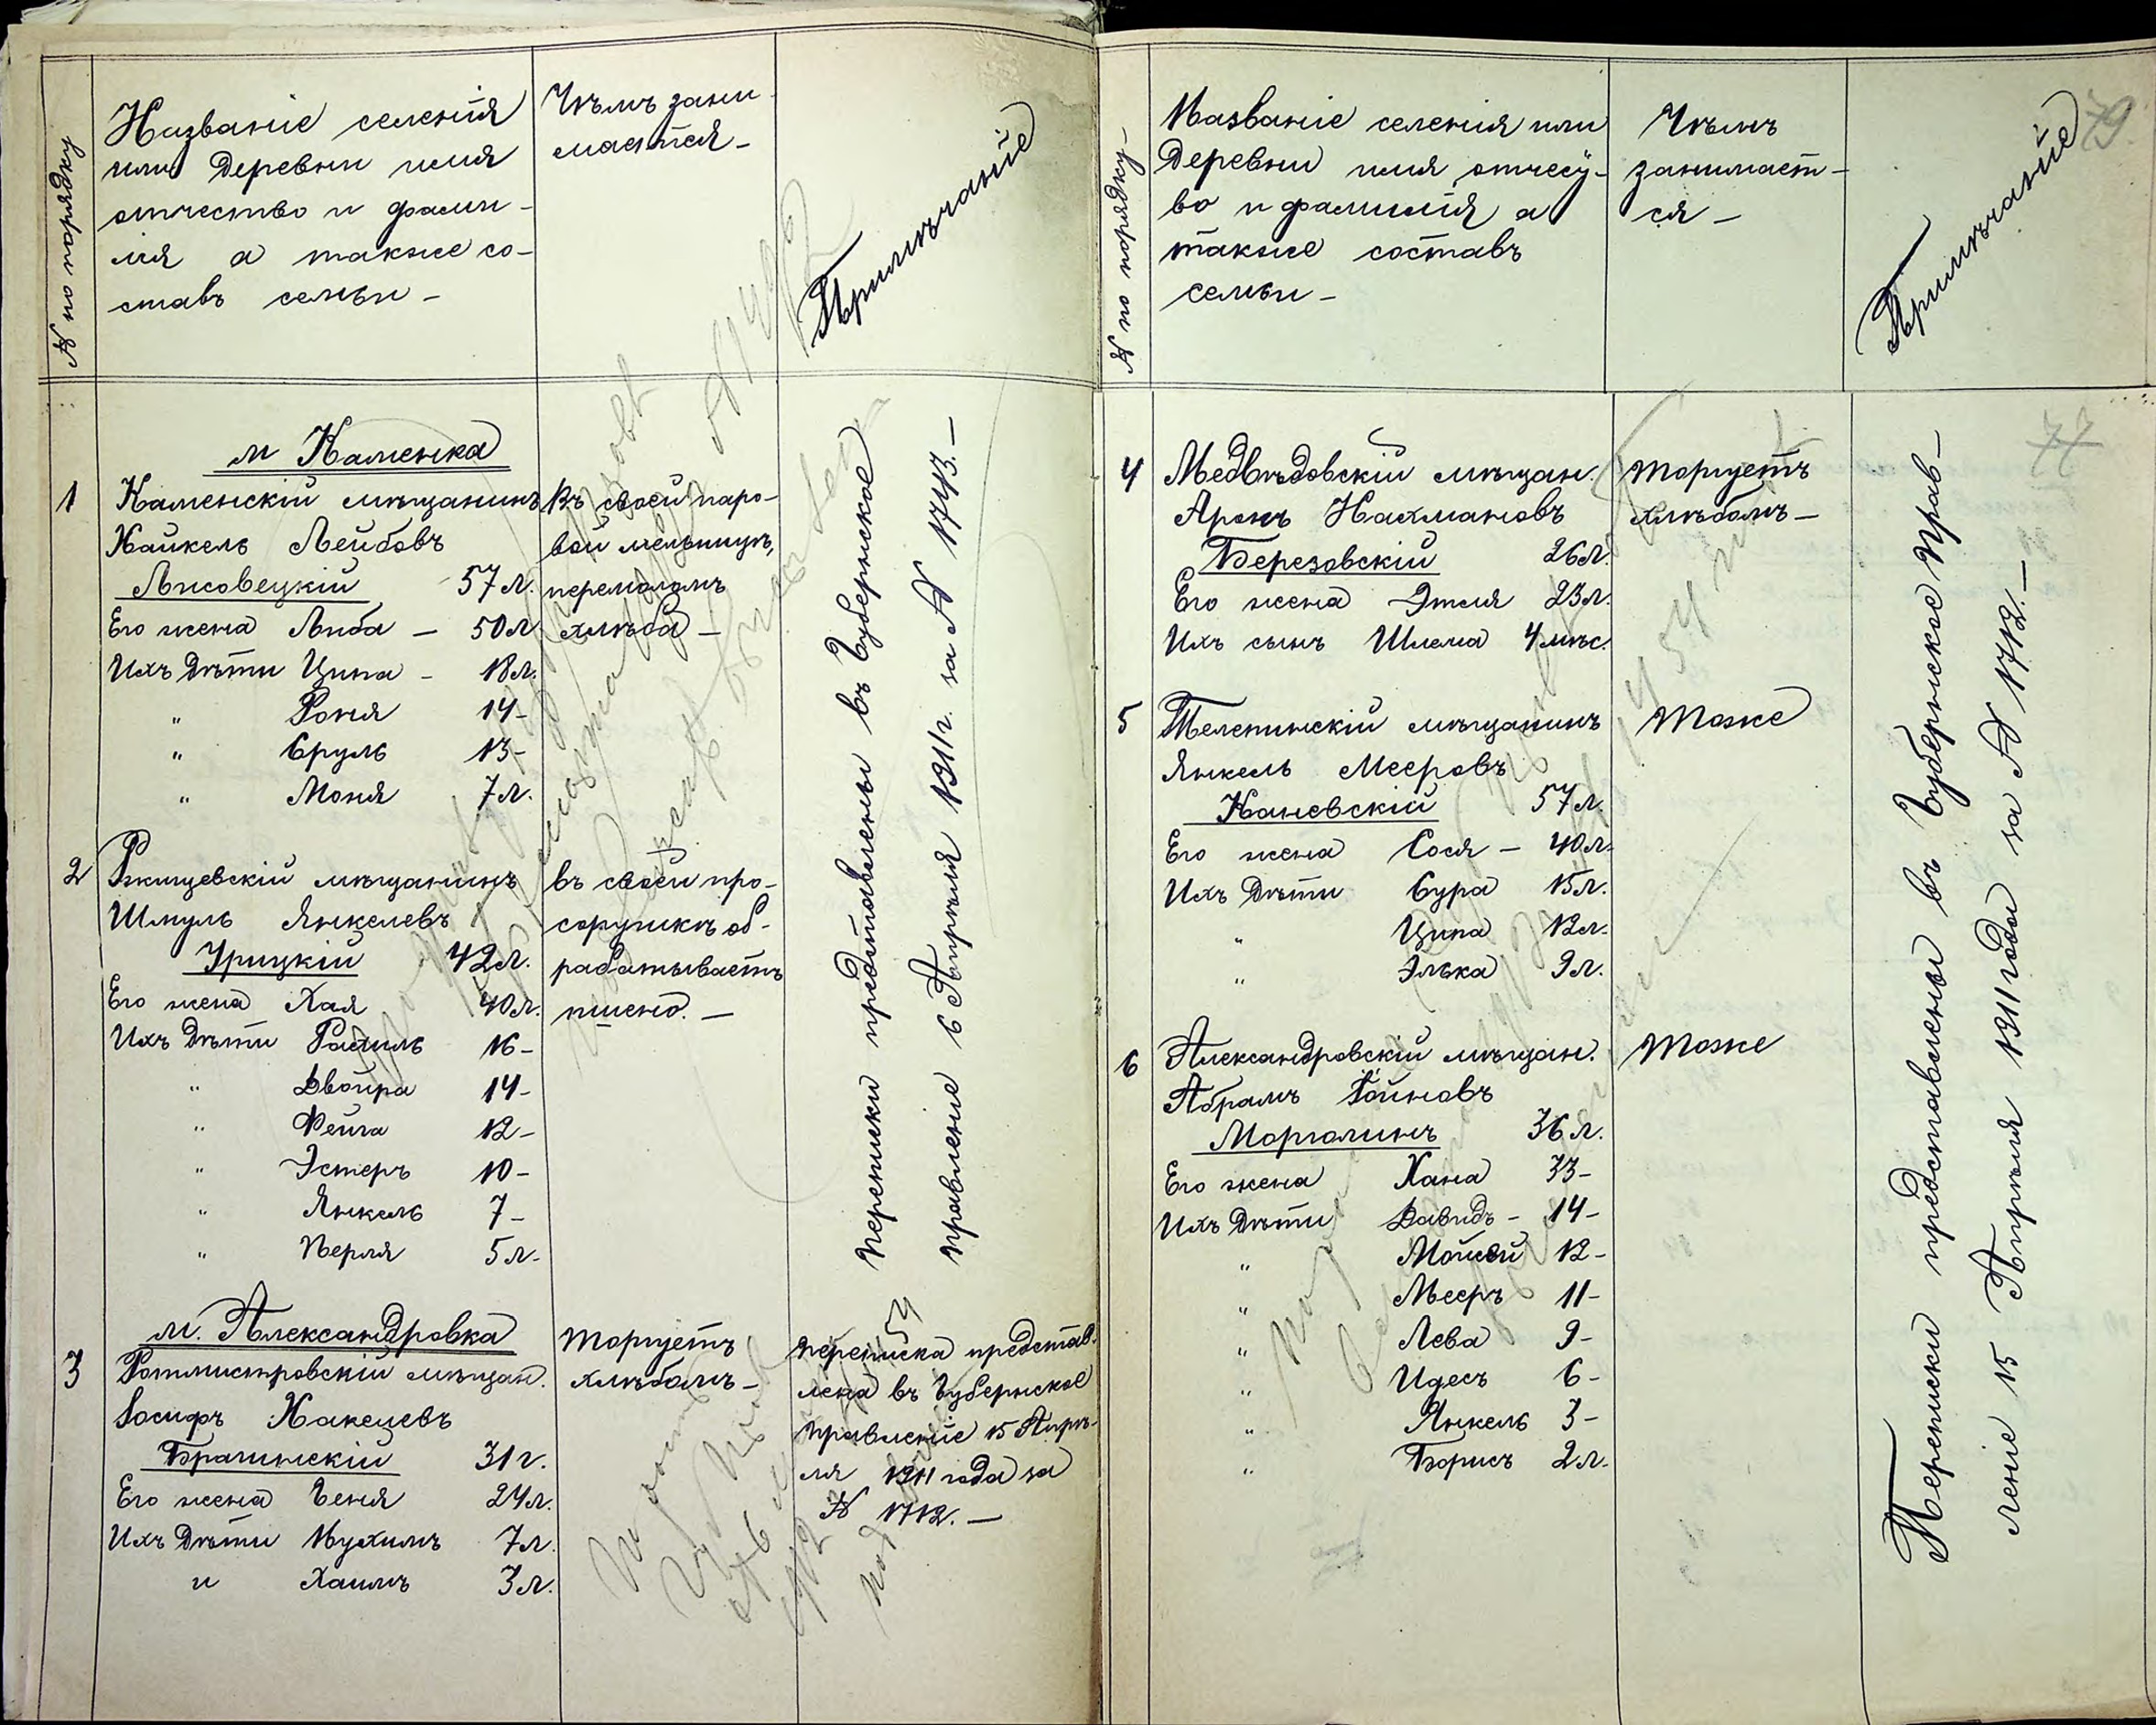 № по порядку
Названіе селенія
или деревни имя
отчество и фами-
лія а также со-
ставъ семьи -
Чѣмъ зани-
мается -
Примѣчаніе
м Каменка
1
Каменскій мѣщанинъ
Хайкель Лейбовъ
Лисовецкій 57 л.
Его жена Либа - 50 л
Ихъ дѣти Ципа - 18 л.
" Роня 14 -
" Сруль 13 -
" Моня 7 л.
Въ своей паро-
вой мельницѣ,
перемоломъ
хлѣба -
2
Ржищевскій мѣщанинъ
Шмуль Янкелевъ
Урицкій 42 л.
Его жена Хая 40 л.
Ихъ дѣти Рахиль 16 -
" Двойра 14 -
" Фейга 12 -
" Эстеръ 10 -
" Янкель 7 -
" Перля 5 л -
въ своей про-
сорушкѣ об-
рабатываетъ
пшено. -
Переписки представлены въ Губернское
правленіе 6 Апрѣля 1911 г. за № 1743. -
м. Александровка
3
Ротмистровскій мѣщан.
Іосифъ
Брагинскій 31 г.
Его жена Геня 24 л.
Ихъ дѣти Нухимъ 7 л
и Хаимъ 3 л.
торгуетъ
хлѣбомъ -
переписка представ-
лена въ Губернское
правленіе 15 Апрѣ-
ля 1911 года за
№ 1712. -
79
№ по порядку -
Названіе селенія или
деревни имя отчест-
во и фамилія а
также составъ
семьи -
Чѣмъ
занимает-
ся -
Примѣчаніе
77
4
Медвѣдовскій мѣщан.
Аронъ Нахмановъ
Березовскій 26 л.
Его жена Этля 23 л.
Ихъ сынъ Шлема 4 мѣс.
торгуетъ
хлѣбомъ -
5
Телепинскій мѣщанинъ
Янкель Мееровъ
Каневскій 57 л.
Его жена Сося - 40 л.
Ихъ дѣти Сура 15 л.
" Ципа 12 л.
" Элька 9 л.
тоже
6
Александровскій мѣщан.
Абрамъ Іойновъ
Моргалинъ 36 л.
Его жена Хана 33 -
Ихъ дѣти Давидъ - 14 -
" Мойсей 12 -
" Мееръ 11 -
" Лева 9 -
" Идесъ 6 -
" Янкель 3 -
" Борисъ 2 л.
тоже
Переписки представлены въ Губернское Прав-
леніе 15 Апрѣля 1911 года за № 1712. -